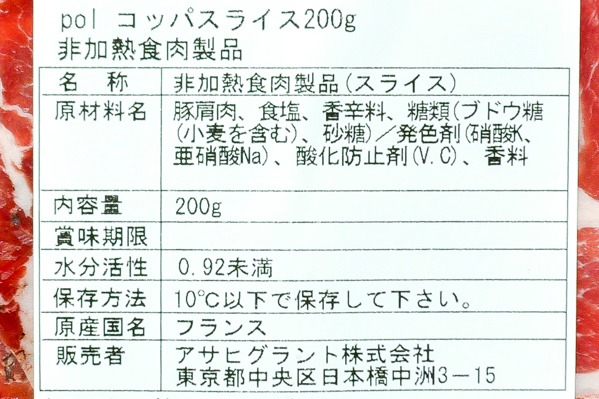 pol コッパスライス200g
非加熱食肉製品
名 称 非加熱食肉製品(スライス)
原材料名 豚肩肉、食塩、香辛料、糖類(ブドウ糖
(小麦を含む)、砂糖)／発色剤(硝酸K、
亜硝酸Na)、酸化防止剤(V.C)、香料
内容量 200g
賞味期限
水分活性 0.92未満
保存方法 10℃以下で保存して下さい。
原産国名 フランス
販売者 アサヒグラント株式会社
東京都中央区日本橋中洲3－15